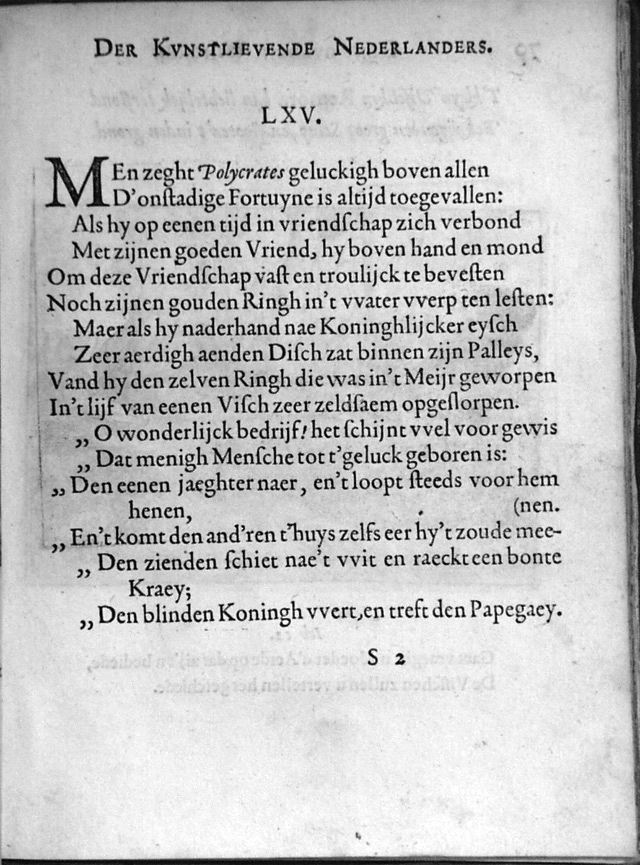 DER KVNSTLIEVENDE NEDERLANDERS.
LXV.
MEn zeght Polycrates geluckigh boven allen
D'onſtadige Fortuyne is altijd toegevallen:
Als hy op eenen tijd in vriendſchap zich verbond
Met zijnen goeden Vriend, hy boven hand en mond
Om deze Vriendſchap vaſt en troulijck te beveſten
Noch zijnen gouden Ringh in't vvater vverp ten leſten:
Maer als hy naderhand nae Koninghlijcker eyſch
Zeer aerdigh aenden Diſch zat binnen zijn Palleys,
Vand hy den zelven Ringh die was in't Meijr geworpen
In't lijf van eenen Viſch zeer zeldſaem opgeſlorpen.
„ O wonderlijck bedrijf! het ſchijnt vvel voor gewis
„ Dat menigh Menſche tot t'geluck geboren is:
„ Den eenen jaeghter naer, en't loopt ſteeds voor hem
henen, (nen.
„ En't komt den and'ren t'huys zelfs eer hy't zoude mee-
„ Den zienden ſchiet nae't vvit en raeckt een bonte
Kraey;
„ Den blinden Koningh vvert, en treft den Papegaey.
S 2